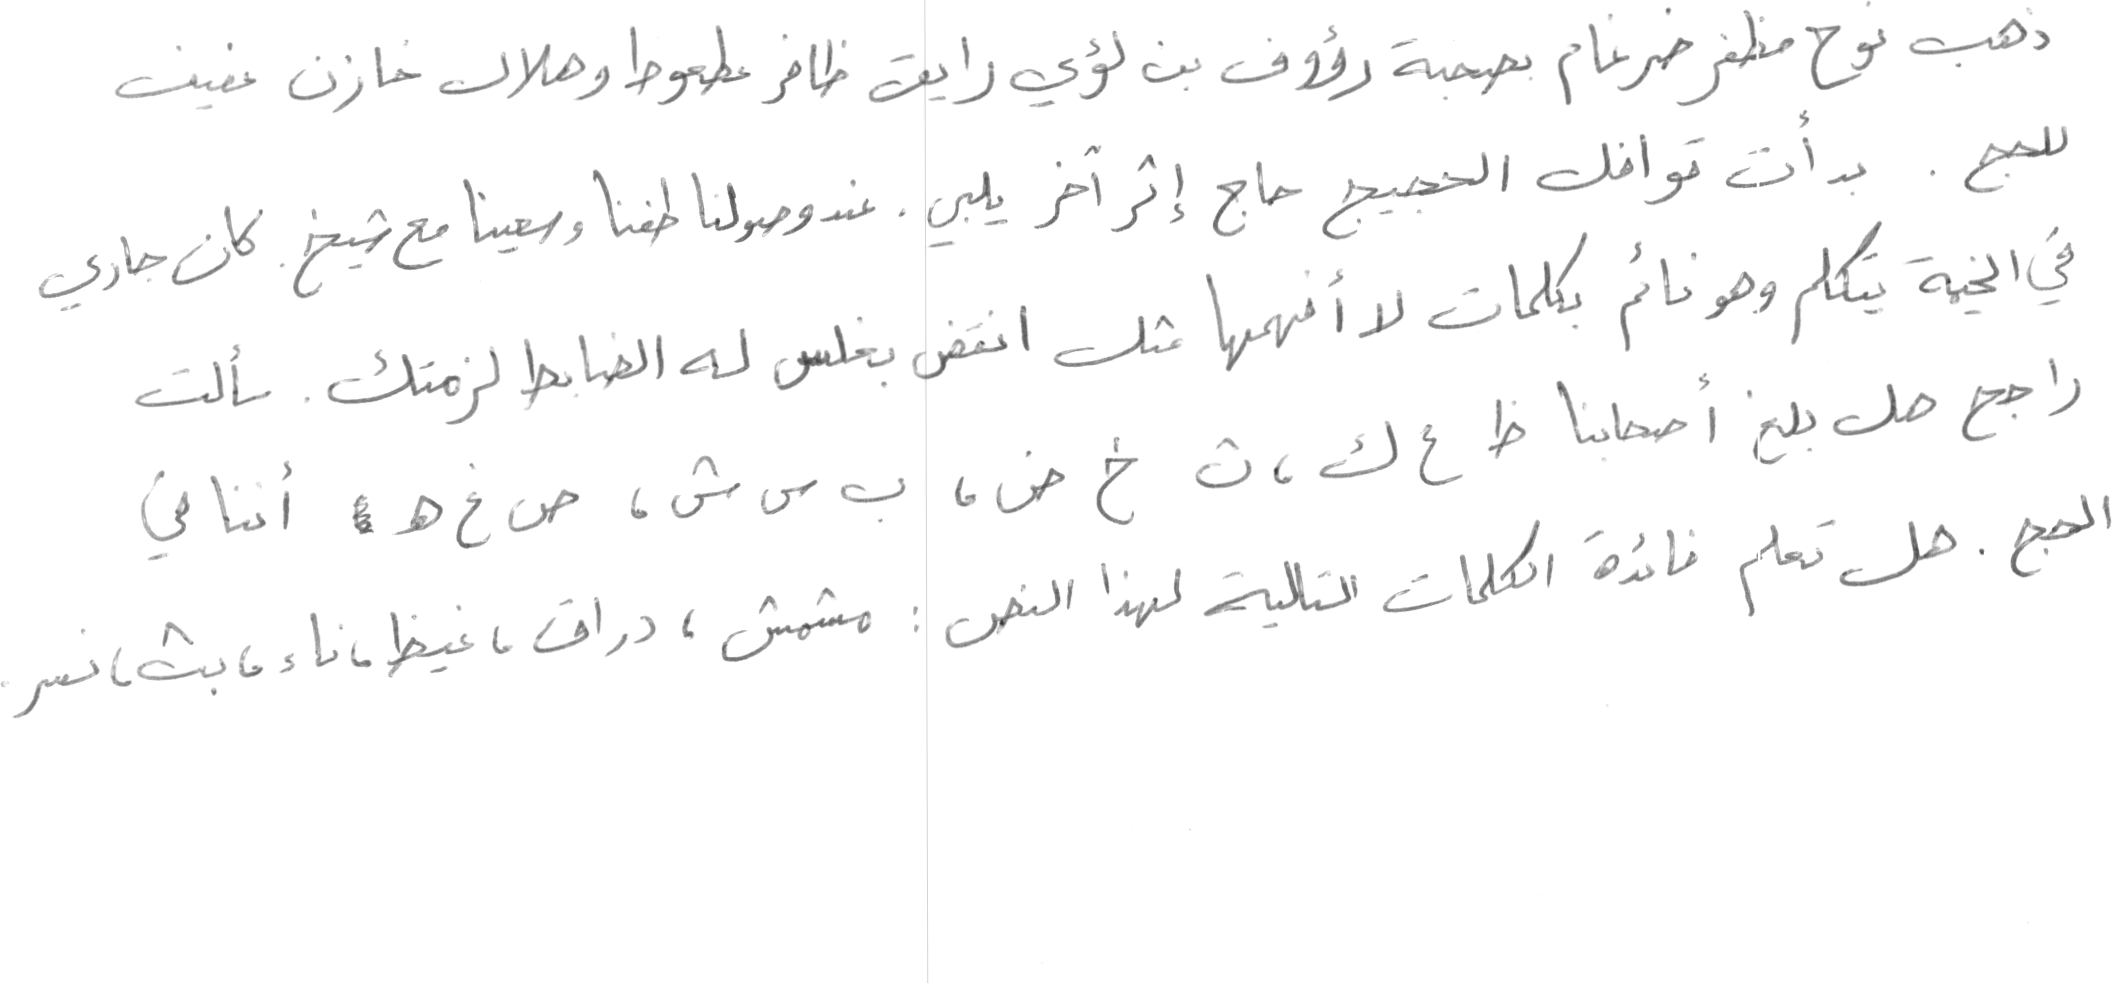 ذهب نوح مظفر ضرغام بصحبة رؤوف بن لؤي رايق ظافر عطعوط وهلال خازن عفيف
للحج . بدأت قوافل الحجيج حاج إثر آخر يلبي . عند وصولنا طفنا وسعينا مع شيخ . كان جاري
في الخيمة يتكلم وهو نائم بكلمات لا أفهمها مثل انقض بغلس له الضابط لزمتك . سألت
راجح هل بلغ أصحابنا ظ ع ك ، ث خ ض ، ب س ش ، ص غ ه أننا في
الحج . هل تعلم فائدة الكلمات التالية لهذا النص : مشمش ، دراق ، غيظ ، ناء ، بث ، نسر .